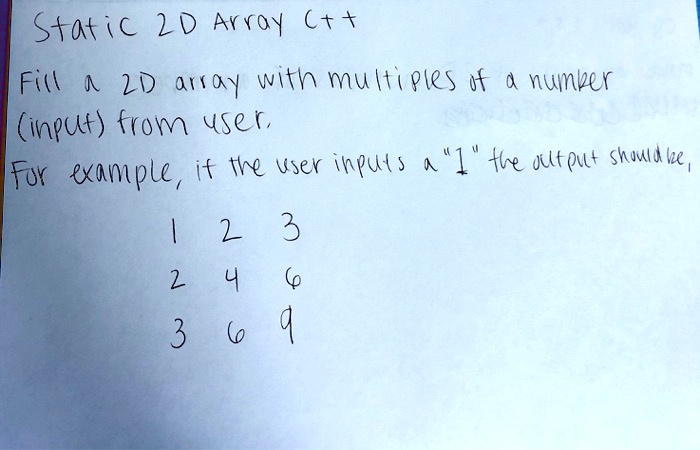 Static 2D Array C++
Fill a 2D array with multiples of a number
(input) from user.
For example, if the user inputs a "1" the output should be,
1 2 3
2 4 6
3 6 9